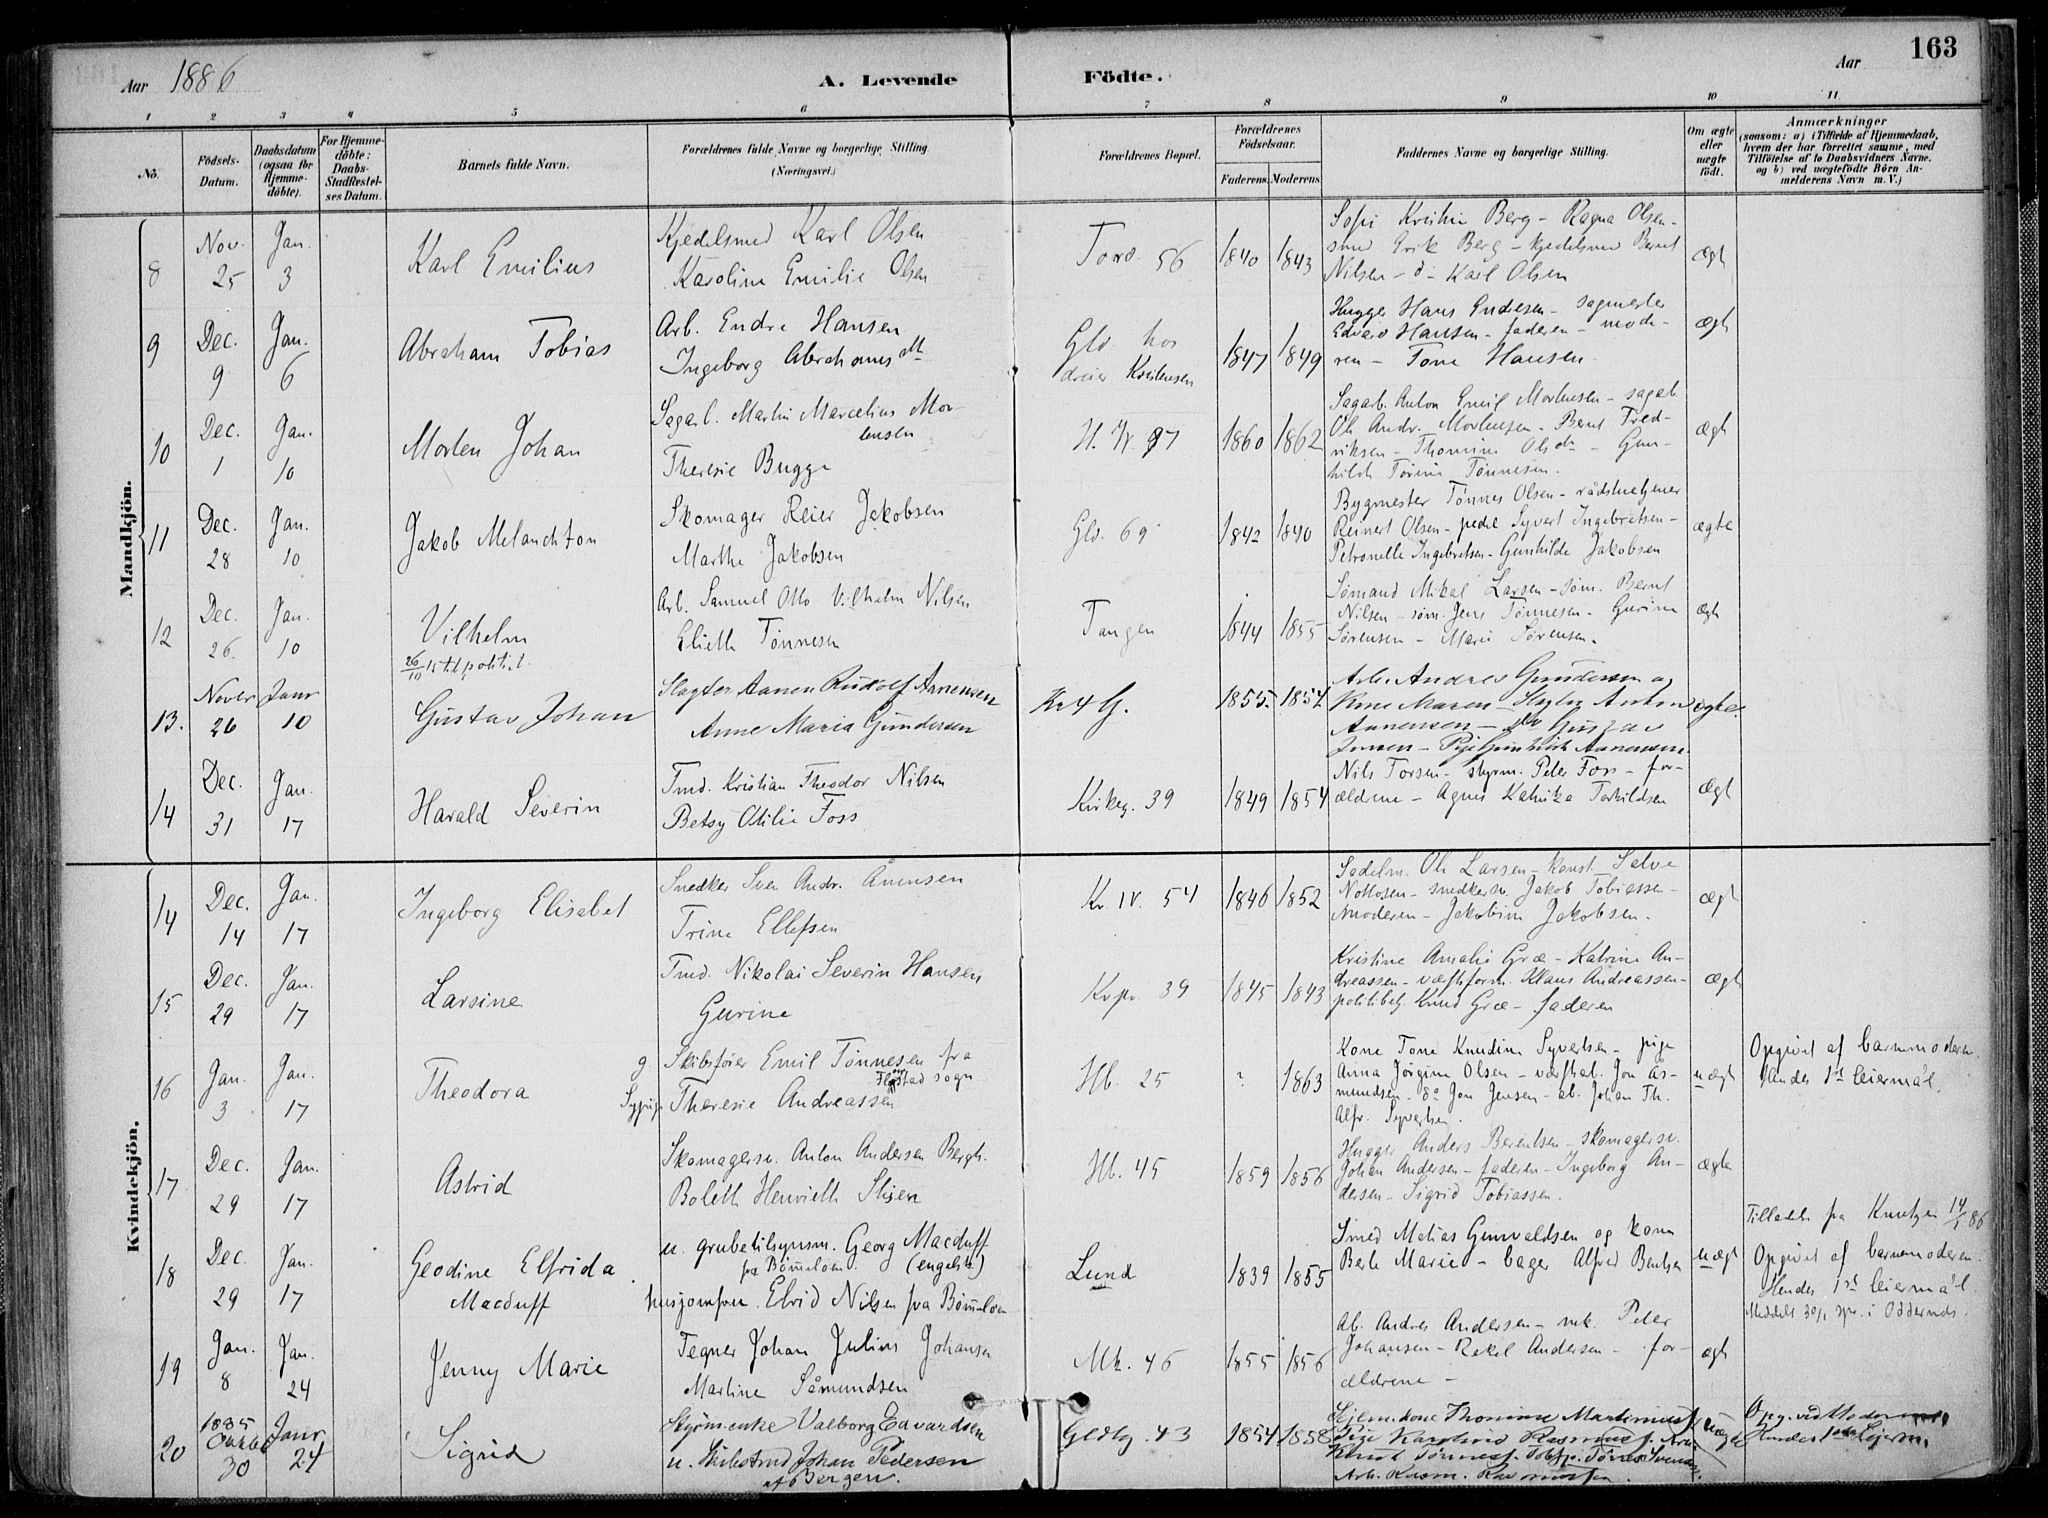 Aar 1886
A. Levende Födte.
Aar
163
1 2 3 4 5 6 7 8 9 10 11
No.
Födsels-Datum.
Daabsdatum (ogsaa for Hjemme-döbte).
For Hjemme-döbte: Daabs-Stadfæstel-ses Datum.
Barnets fulde Navn.
Forældrenes fulde Navne og borgerlige Stilling. (Næringsvei.)
Forældrenes Bopæl.
Forældrenes Födselsaar.
Faderens. Moderens.
Faddernes Navne og borgerlige Stilling.
Om ægte eller uægte födt.
Anmærkninger
(saasom: a) i Tilfælde af Hjemmedaab,
hvem der har forrettet samme, med
Tilföielse af to Daabsvidners Navne.
og b) ved uægtefödte Börn An-
melderens Navn m. V.)
Mandkjön.
8 Nov. 25 Jan. 3
Karl Emilius
Kjedelsmed Karl Olsen
Karoline Emilie Olsen
56 1840 1843
Berg - Ragna Olsen -
smed Erik Berg - kjedelsmed Bernt
Nilsen - do Karl Olsen
ægt
9 Dec. 9 Jan. 6
Abraham Tobias
Arb. Endre Hansen
Ingeborg Abrahamsdtr
hos
dreier Kristensen
1847 1849
Hugger Hans Endresen - sagmester
Edvard Hansen - faderen - mode-
ren - Tone Hansen
ægt
10 Dec. 1 Jan. 10
Morten Johan
Sagarb. Martin Marcelius Mor-
tensen
Theresie Bugge
1860 1862
Sagarb. Anton Emil Mortensen - sagarb.
Ole Andr. Mortensen - Bernt Fred-
riksen - Thomine Olsdtr - Gun-
hilde Torine Tønnesen.
ægt
11 Dec. 28 Jan. 10
Jakob Melanchton
Skomager Reier Jakobsen
Marthe Jakobsen
Gld. 69
1842 1840
Bygmester Tønnes Olsen - rådstuetjener
Reinert Olsen - pedel Syvert Ingebretsen -
Petronelle Ingebretsen - Gunhilde Jakobsen
ægte
12 Dec. 26. Jan. 10
Vilhelm
Arb. Samuel Otto Vilhelm Nilsen
Tønnesen
Tangen
1844 1855
Sømand Mikal Larsen - søm. Bernt
Nilsen - søm. Jens Tønnesen - Gurine
Sørensen - Marie Sørensen.
ægt
13. Novbr 26 Janr 10
Gustav Johan
Slagter Aanen Rudolf Aanensen
Anne Maria Gundersen
1855. 1854
Arb. Andreas Gundersen og
Kone Maren - Slagter Anton
Aanensen -
Jensen - Pige Gunhild Aanensen
ægte.
14 Dec. 31 Jan. 17
Harald Severin
Tmd. Kristian Theodor Nilsen
Betsy Otilie Foss
Kirkeg. 39
1849 1854
Nils Torsen - styrm. Peter Foss - for-
ældrene - Agnes Torkildsen
ægt
Kvindekjön.
14 Dec. 14 Jan. 17
Ingeborg Elisabet
Snedker Sven Andr. Ånensen
Trine Ellefsen
Kr. IV. 54
1846 1852
Sadelm. Ole Larsen - konst. Salve
Nottosen - snedkersv. Jakob Tobiassen -
Moderen - Jakobine Jakobsen.
ægt
15 Dec. 29 Jan. 17
Larsine
Tmd. Nikolai Severin Hansen
Gurine
39
1845 1843
Kristine Amalie Græ - Katrine An-
dreassen - værftsform. Klaus Andreassen -
politibetj. Knud Græ - faderen
ægt
16 Jan. 3 Jan. 17
Theodora
g Skibsfører Emil Tønnesen fra
sogn
Sypige Theresie Andreassen
Hb. 25
? 1863
Kone Tone Knudine Syvertsen - pige
Anna Jørgine Olsen - værftsarb. Jon As-
mundsen - do Jon Jensen - ab. Johan Th.
Alfr. Syvertsen.
uægt
Opgivet af barnemoderen.
Hendes 1ste leiermål.
17 Dec. 29 Jan. 17
Astrid
Skomagersv. Anton Andersen Bergh.
Boleth Henrieth
Hb. 45
1859 1856
Hugger Anders Berentsen - skomagersv.
Johan Andersen - faderen - Ingeborg An-
dersen - Sigrid Tobiassen.
ægte
18 Dec. 29 Jan. 17
Geodine Elfrida
Macduff
u. grubetilsynsm. Georg Macduff
på Bømmeløen. (engelsk)
husjomfru Elvid Nilsen fra Bømmeløen
Lund
1839 1855
Smed Matias Gunvaldsen og kone
Berte Marie - bager Alfred Bentsen
uægt
Tilladelse fra 14/1 86
Opgivet af barnemoderen.
Hendes 1ste leiermål.
Meddelt 30/1 spr. i Oddernes.
19 Jan. 8 Jan. 24
Jenny Marie
Tegner Johan Julius Johansen
Martine Såmundsen
Mk. 46
1855 1856
Ab. Andreas Andersen - Peter
Johansen - Rakel Andersen - for-
ældrene -
ægt
20 1885 Oktober 30 Janr 24
Sigrid
Valborg Edvardsen
u. Johan Pedersen
af Bergen.
43 1854 1858
uægte
Opg. ved Moderen